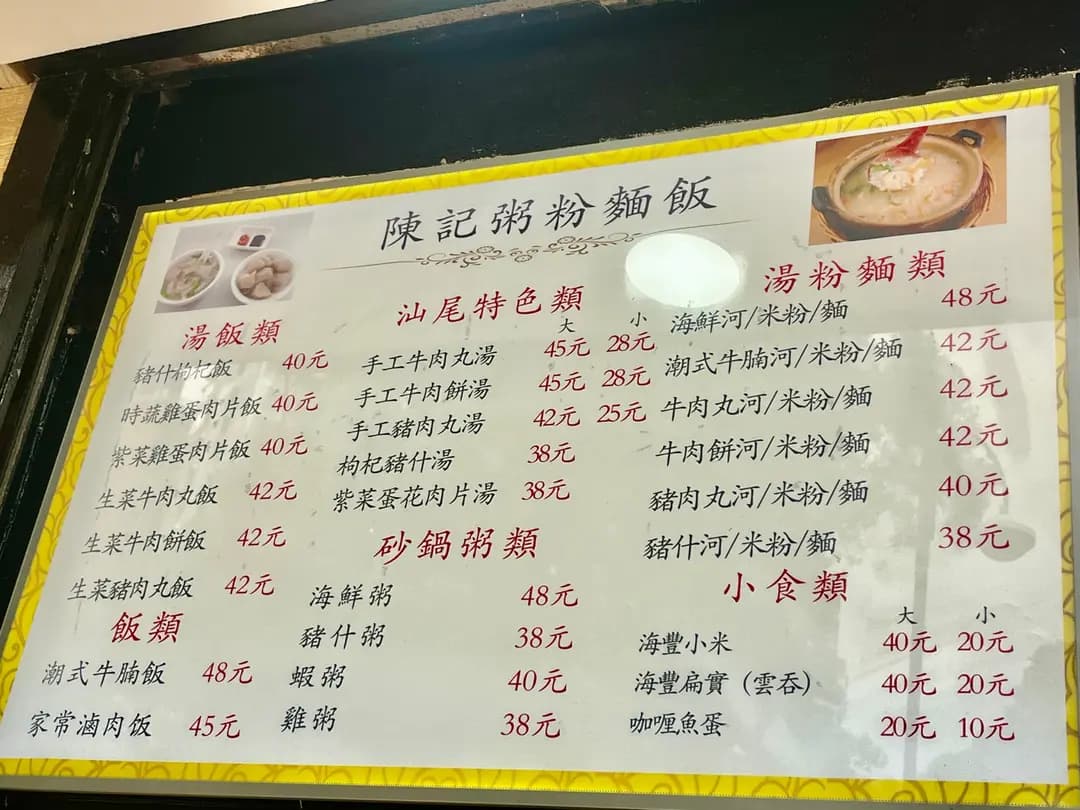 陳記粥粉麵飯
湯飯類
豬什枸杞飯 40元
時蔬雞蛋肉片飯 40元
紫菜雞蛋肉片飯 40元
生菜牛肉丸飯 42元
生菜牛肉餅飯 42元
生菜豬肉丸飯 42元
飯類
潮式牛腩飯 48元
家常滷肉饭 45元
汕尾特色類
大 小
手工牛肉丸湯 45元 28元
手工牛肉餅湯 45元 28元
手工豬肉丸湯 42元 25元
枸杞豬什湯 38元
紫菜蛋花肉片湯 38元
砂鍋粥類
海鮮粥 48元
豬什粥 38元
蝦粥 40元
雞粥 38元
湯粉麵類
海鮮河/米粉/麵 48元
潮式牛腩河/米粉/麵 42元
牛肉丸河/米粉/麵 42元
牛肉餅河/米粉/麵 42元
豬肉丸河/米粉/麵 40元
豬什河/米粉/麵 38元
小食類
大 小
海豐小米 40元 20元
海豐扁實（雲吞） 40元 20元
咖喱魚蛋 20元 10元